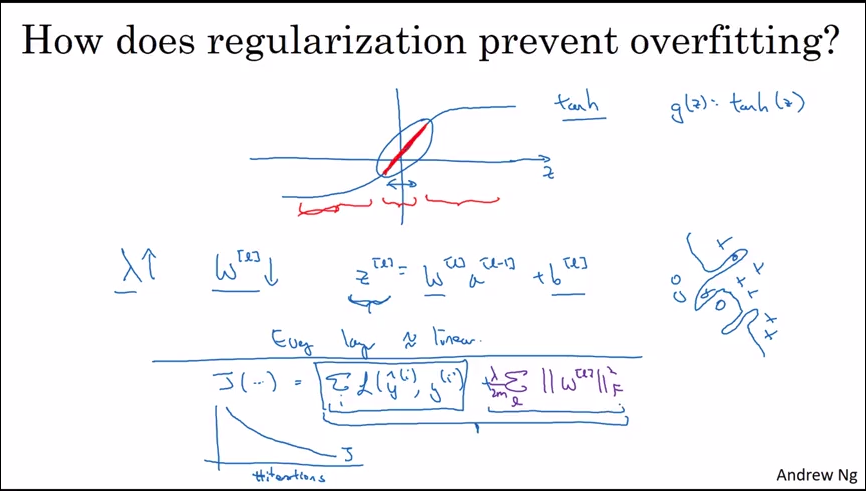 How does regularization prevent overfitting?
tanh
g(z) = tanh(z)
z
λ↑ W^[l]↓ z^[l] = W^[l] a^[l-1] + b^[l]
Every layer ≈ linear.
J(…) = Σ_i L(ŷ^(i), y^(i)) + λ/2m Σ_l ||W^[l]||²_F
J
#iterations
Andrew Ng